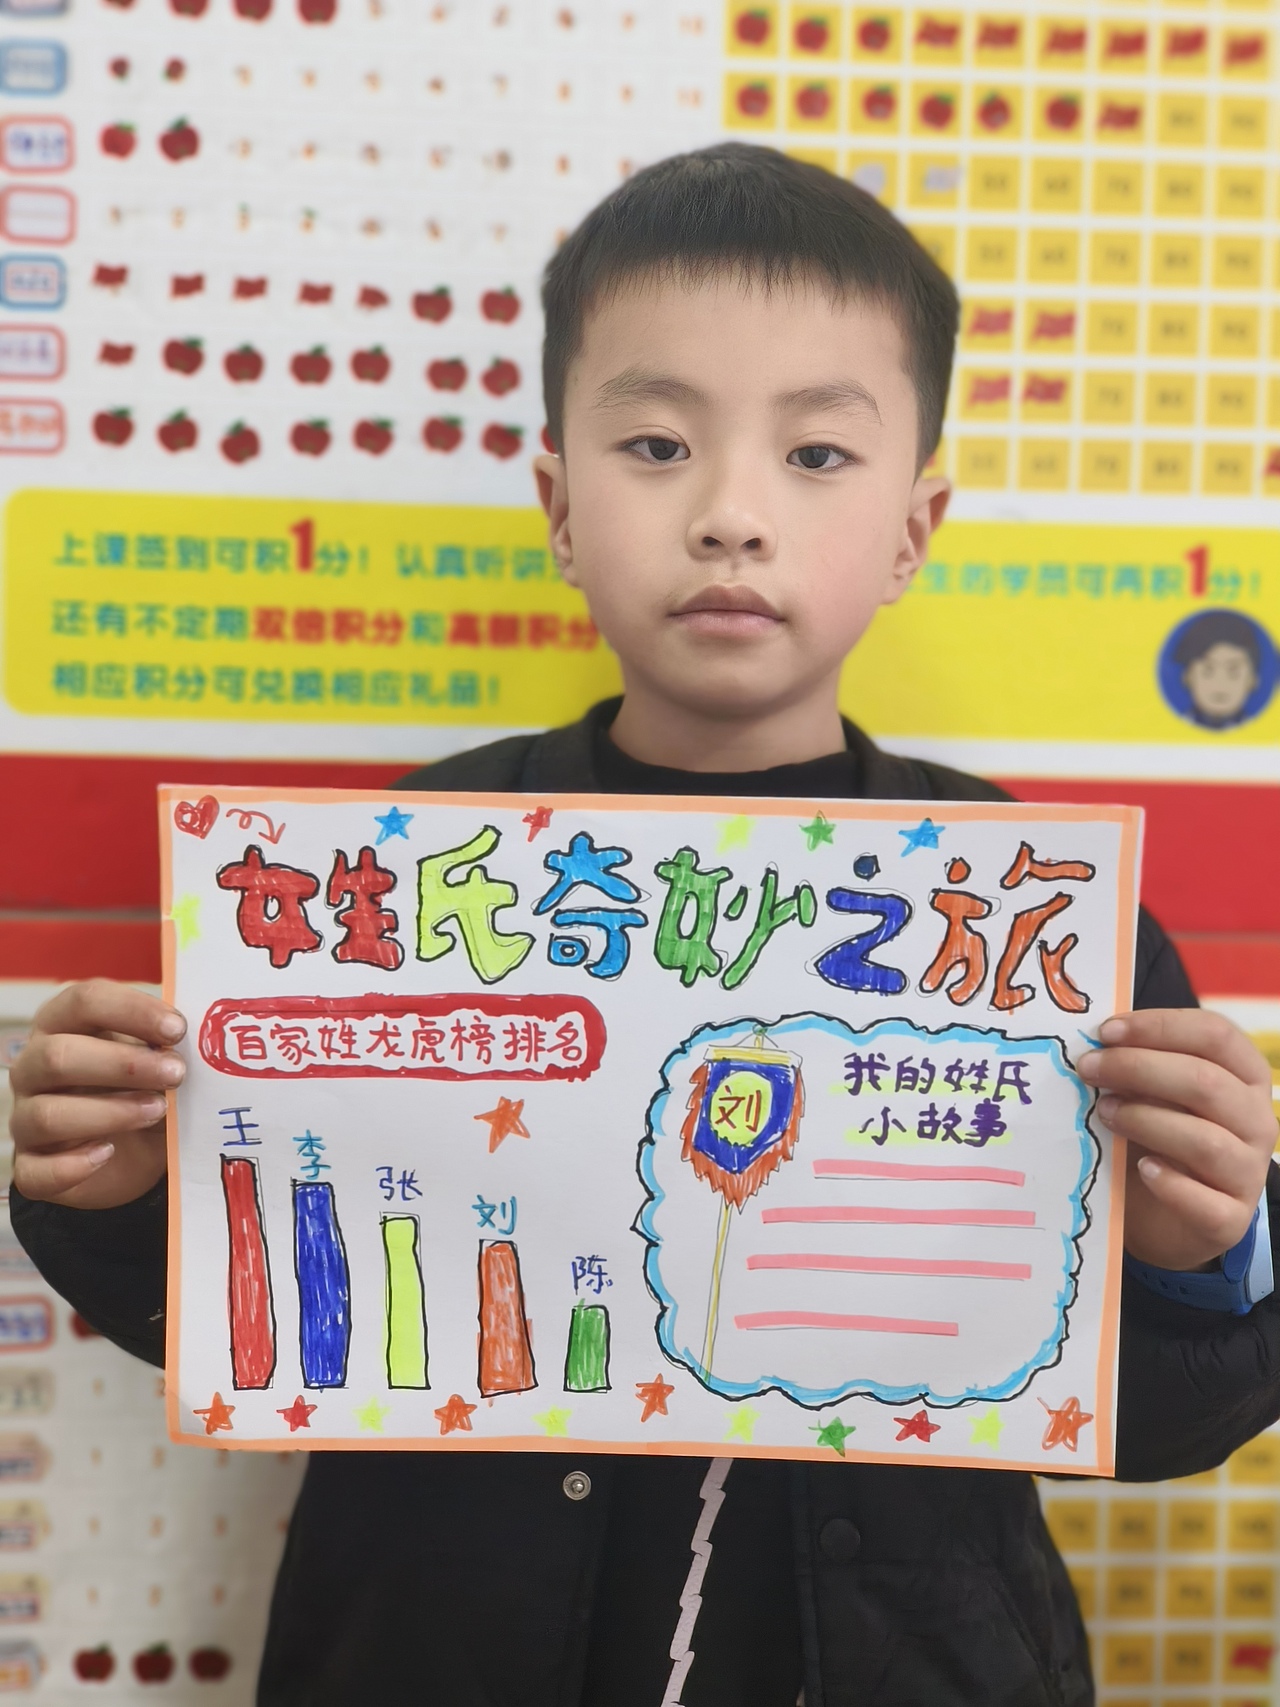 上课签到可积1分！认真听讲
生的学员可再积1分！
还有不定期双倍积分和高额积分
相应积分可兑换相应礼品！
姓氏奇妙之旅
百家姓龙虎榜排名
王
李
张
刘
陈
刘
我的姓氏
小故事